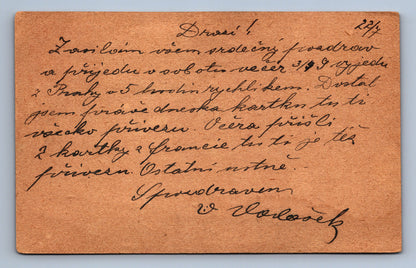 22/7
Drazí!
Zasílám všem srdečný pozdrav
a přijedu v sobotu večer 3/4 9 vyjedu
z Prahy v 5 hodin rychlíkem. Dostal
jsem právě dneska kartku tu ti
přivezu. Včera přišli
2 kartky z Francie tu ti je též
přivezu. Ostatní ústně.
S pozdravem
V